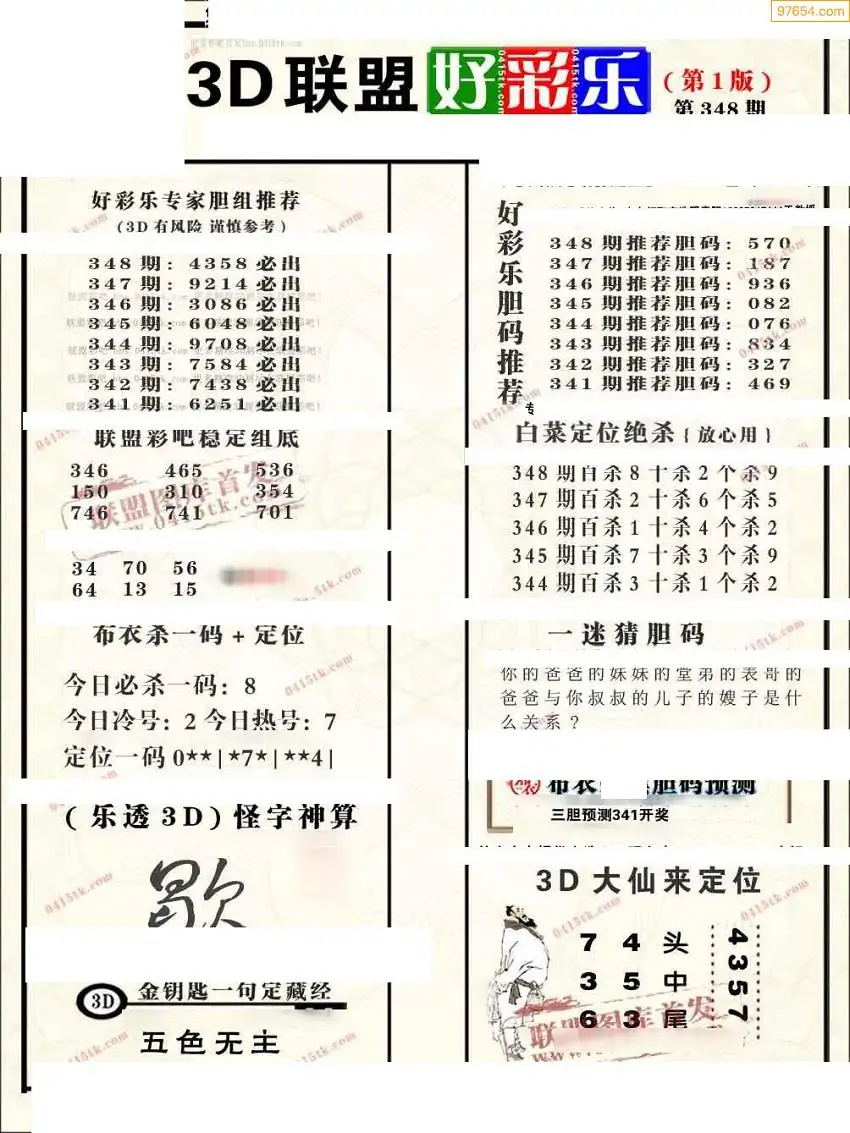 97654.com
3D联盟好彩乐
(第1版)
第348期
好彩乐专家胆组推荐
(3D有风险 谨慎参考)
348期:4358必出
347期:9214必出
346期:3086必出
345期:6048必出
344期:9708必出
343期:7584必出
342期:7438必出
341期:6251必出
联盟彩吧稳定组底
346 465 536
150 310 354
746 741 701
34 70 56
64 13 15
布衣杀一码+定位
今日必杀一码:8
今日冷号:2 今日热号:7
定位一码0**|*7*|**4|
(乐透3D)怪字神算
歇
3D
金钥匙一句定藏经
五色无主
好彩乐胆码推荐
348期推荐胆码:570
347期推荐胆码:187
346期推荐胆码:936
345期推荐胆码:082
344期推荐胆码:076
343期推荐胆码:834
342期推荐胆码:327
341期推荐胆码:469
专
白菜定位绝杀{放心用}
348期百杀8十杀2个杀9
347期百杀2十杀6个杀5
346期百杀1十杀4个杀2
345期百杀7十杀3个杀9
344期百杀3十杀1个杀2
一迷猜胆码
你的爸爸的妹妹的堂弟的表哥的
爸爸与你叔叔的儿子的嫂子是什
么关系?
布衣 胆码预测
三胆预测341开奖
3D大仙来定位
7 4 头
3 5 中
6 3 尾
4357
联盟图库首发
www.0415tk.com
0415tk.com